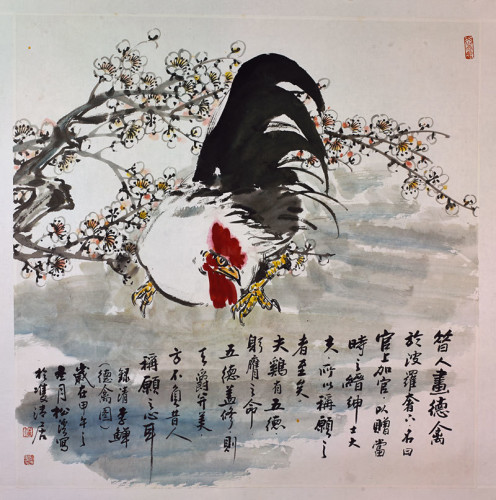 昔人畫德禽
於波羅奢六名曰
官上加官以贈當
時之縉紳士大
夫所以稱願之
者至矣
夫鷄有五德
躬膺之命
五德盖修則
天爵斯美
方不負昔人
稱願之心耳
錄清李鱓
(德禽圖)
歲在甲午之
月松濤寫
於雙清居